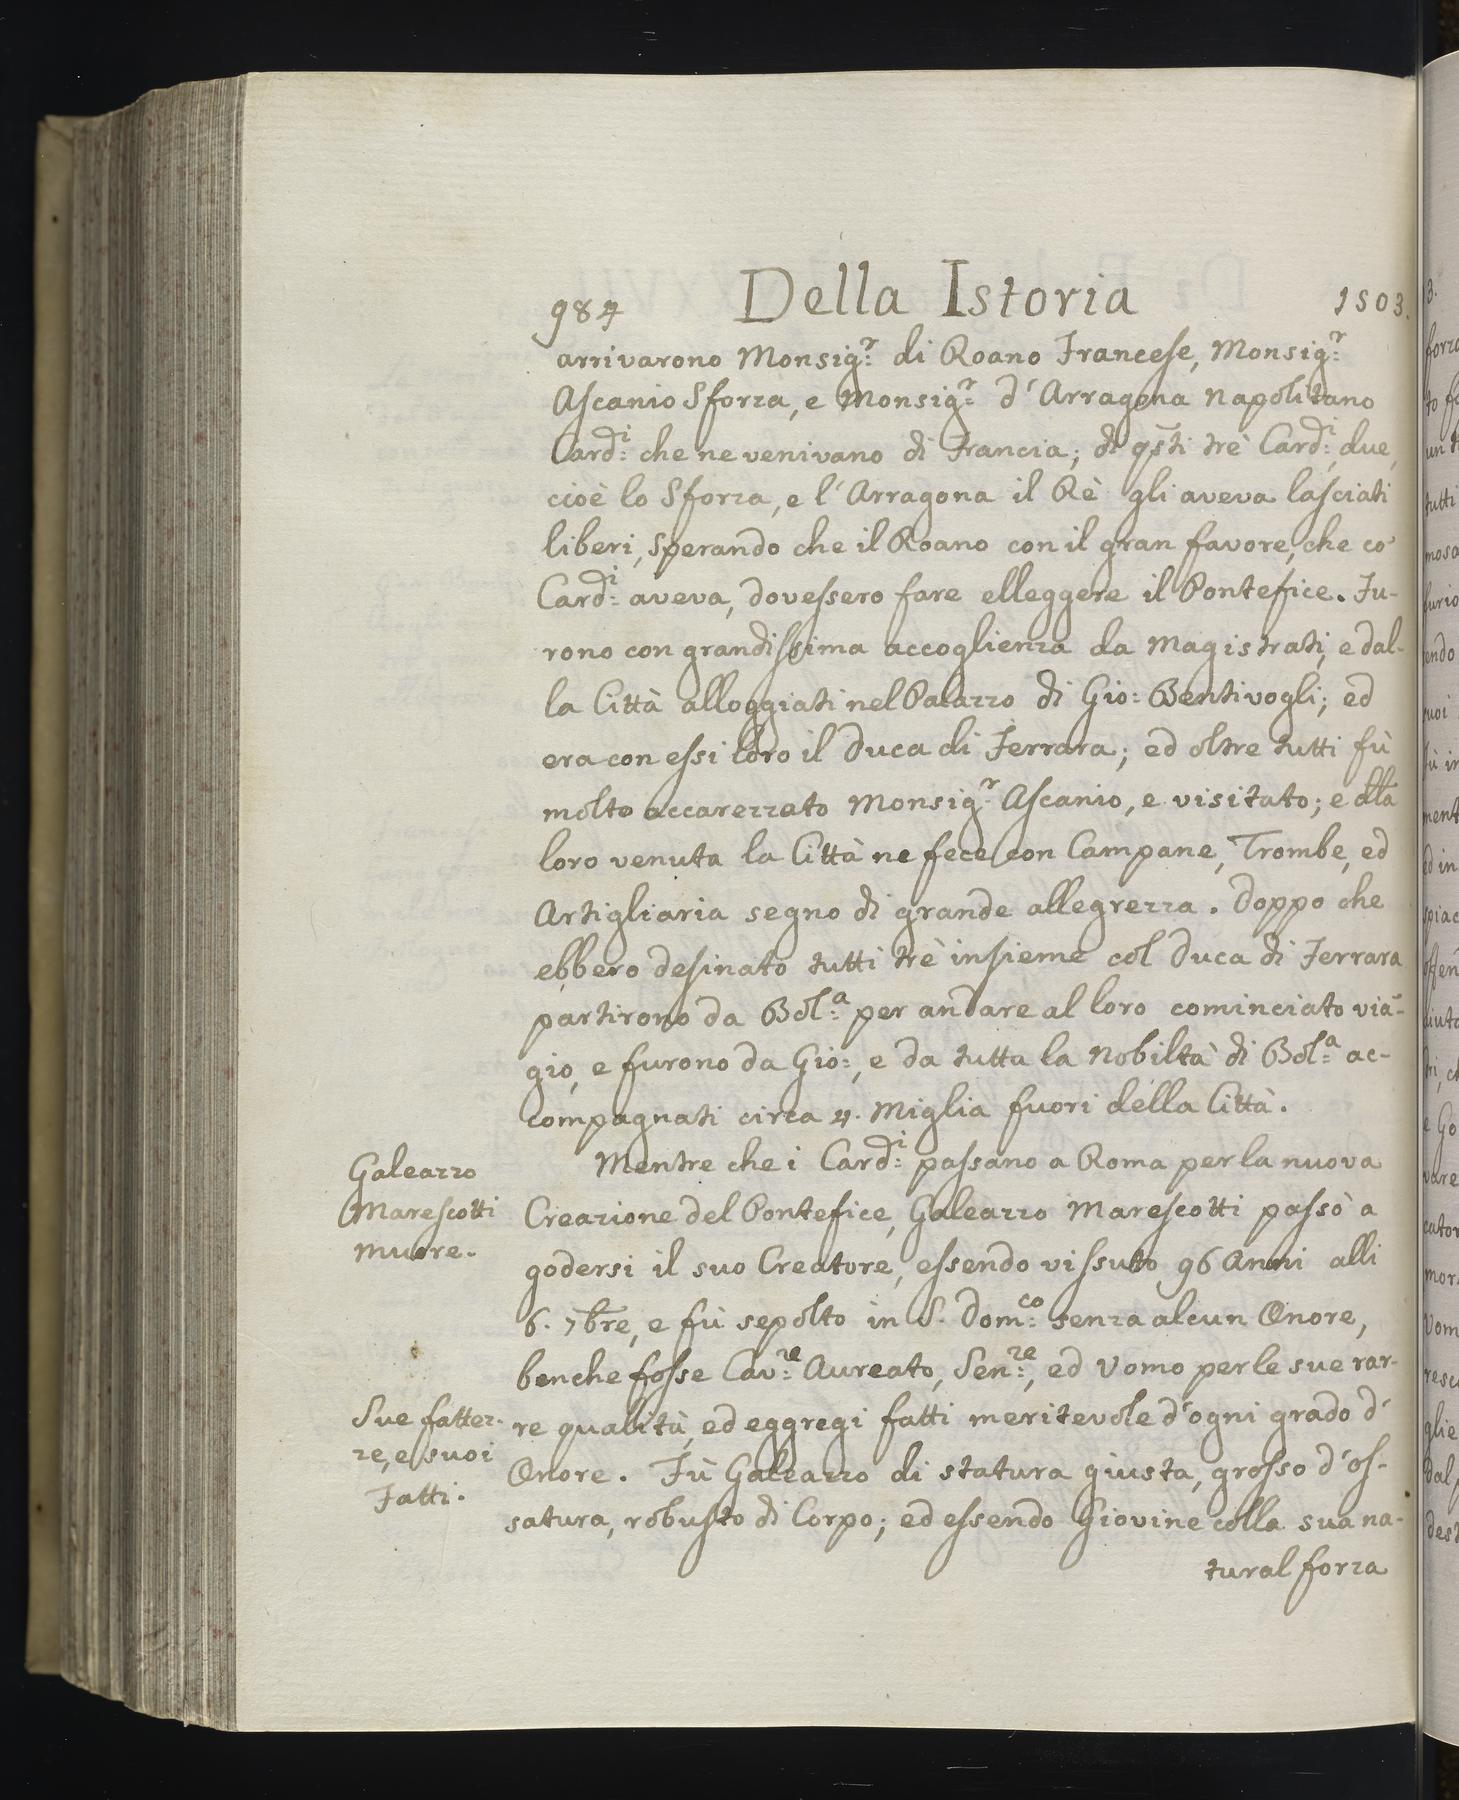 984 Della Istoria 1503.
arrivarono Monsig.r di Roano Francese, Monsig.r
Ascanio Sforza, e Monsig.r d'Arragona Napolitano
Card.i che ne venivano di Francia; di qsti trè Card.i, due,
cioè lo Sforza, e l'Arragona il Rè gli aveva lasciati
liberi, sperando che il Roano con il gran favore, che co'
Card.i aveva, dovessero fare elleggere il Pontefice. Fu-
rono con grandissima accoglienza da Magistrati, e dal-
la Città alloggiati nel Palazzo di Gio: Bentivogli; ed
era con essi loro il Duca di Ferrara; ed oltre tutti fù
molto accarezzato Monsig.r Ascanio, e visitato; e dlla
loro venuta la Città ne fece con Campane, Trombe, ed
Artigliaria segno di grande allegrezza. Doppo che
ebbero desinato tutti trè insieme col Duca di Ferrara
partirono da Bol.a per andare al loro cominciato via-
gio, e furono da Gio:, e da tutta la Nobiltà di Bol.a ac-
compagnati circa 4. Miglia fuori della Città.
Galeazzo
Marescotti
muore.
Mentre che i Card.i passano a Roma per la nuova
Creazione del Pontefice, Galeazzo Marescotti passò a
godersi il suo Creatore, essendo vissuto 96 Anni alli
6. 7bre, e fù sepolto in S. Dom.co senza alcun Onore,
benche fosse Cav.re Aureato, Sen.re, ed Uomo per le sue rar-
re qualità, ed eggregi fatti meritevole d'ogni grado d'
Onore. Fù Galeazzo di statura giusta, grosso d'os-
satura, robusto di Corpo; ed essendo Giovine colla sua na-
Sue fattez-
ze, e suoi
Fatti.
tural forza